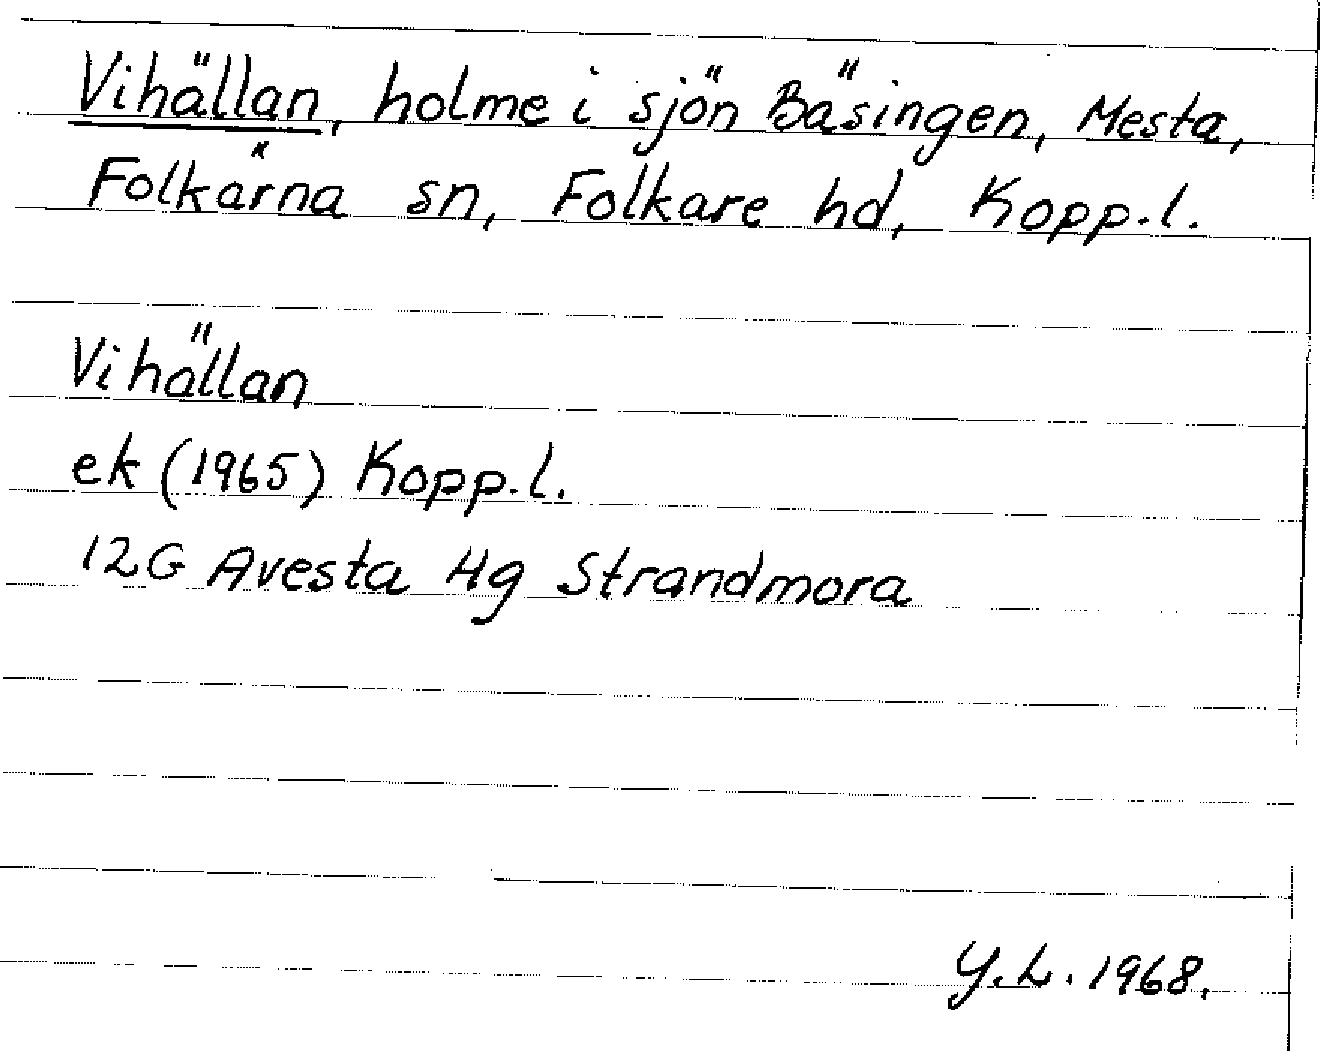 Vihällan, holme i sjön Bäsingen, Mesta,
Folkärna sn, Folkare hd, Kopp.l.
Vihällan
ek (1965) Kopp.l.
12G Avesta 4g Strandmora
Y.L. 1968.